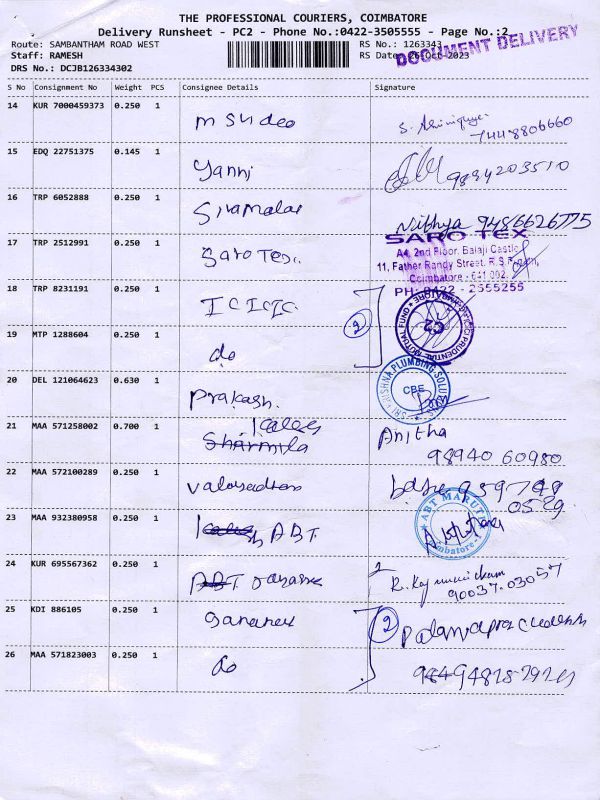 THE PROFESSIONAL COURIERS, COIMBATORE
Delivery Runsheet - PC2 - Phone No.:0422-3505555 - Page No.:2
Route: SAMBANTHAM ROAD WEST
RS No.: 1263343
Staff: RAMESH
RS Date: 26-Oct-2023
DOCUMENT DELIVERY
DRS No.: DCJB126334302
S No Consignment No Weight PCS Consignee Details Signature
14 KUR 7000459373 0.250 1
7448806660
15 EDQ 22751375 0.145 1
9894203510
16 TRP 6052888 0.250 1
Nithya 9486626775
17 TRP 2512991 0.250 1 Saro Tex.
SARO TEX
A4, 2nd Floor, Balaji Castle
11, Father Randy Street, R.S.Puram,
Coimbatore - 641 002.
PH: 0422 - 2555255
18 TRP 8231191 0.250 1 ICICI
2
PRUDENTIAL MUTUAL FUND
19 MTP 1288604 0.250 1 do
20 DEL 121064623 0.630 1 Prakash.
SRI KRISHNA PLUMBING SOLUTIONS
CBE
21 MAA 571258002 0.700 1 Sharmila
Anitha
98940 60980
22 MAA 572100289 0.250 1
23 MAA 932380958 0.250 1 ABT
ABT MARUTI
Coimbatore
24 KUR 695567362 0.250 1
90037.03057
25 KDI 886105 0.250 1
2
26 MAA 571823003 0.250 1 do